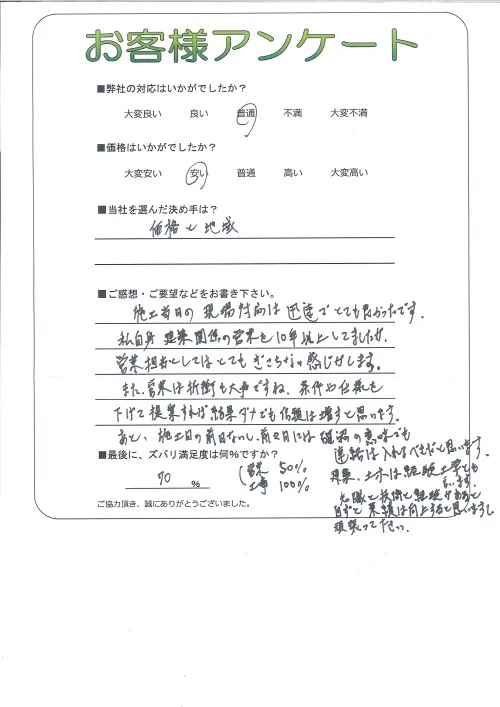 お客様アンケート
■弊社の対応はいかがでしたか？
大変良い 良い 普通 不満 大変不満
■価格はいかがでしたか？
大変安い 安い 普通 高い 大変高い
■当社を選んだ決め手は？
価格と地域
■ご感想・ご要望などをお書き下さい。
施工当日の現場対応は迅速でとても良かったです。
私自身建築関係の営業を10年以上してましたが、
営業担当としてはとてもぎこちない感じがします。
また、営業は折衝も大事ですね。条件や仕様も
下げて提案すれば結果ダメでも信頼は増すと思います。
あと、施工日の前日ないし、前々日には確認の意味でも
連絡は入れるべきだと思います。
■最後に、ズバリ満足度は何%ですか？
70 %
営業 50%
工事 100%
建築、土木は経験工学とも
言います。
知識と技術と経験があると
自ずと業績は向上すると思いますし
頑張って下さい。
ご協力頂き、誠にありがとうございました。